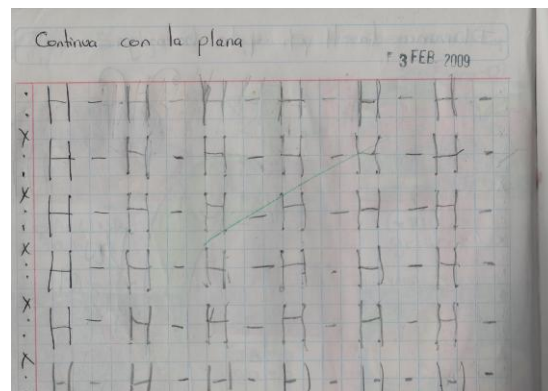 Continua con la plana
3 FEB. 2009
H - H - H - H - H - H -
H - H - H - H - H - H -
H - H - H - H - H - H -
H - H - H - H - H - H -
H - H - H - H - H - H -
H - H - H - H - H - H -